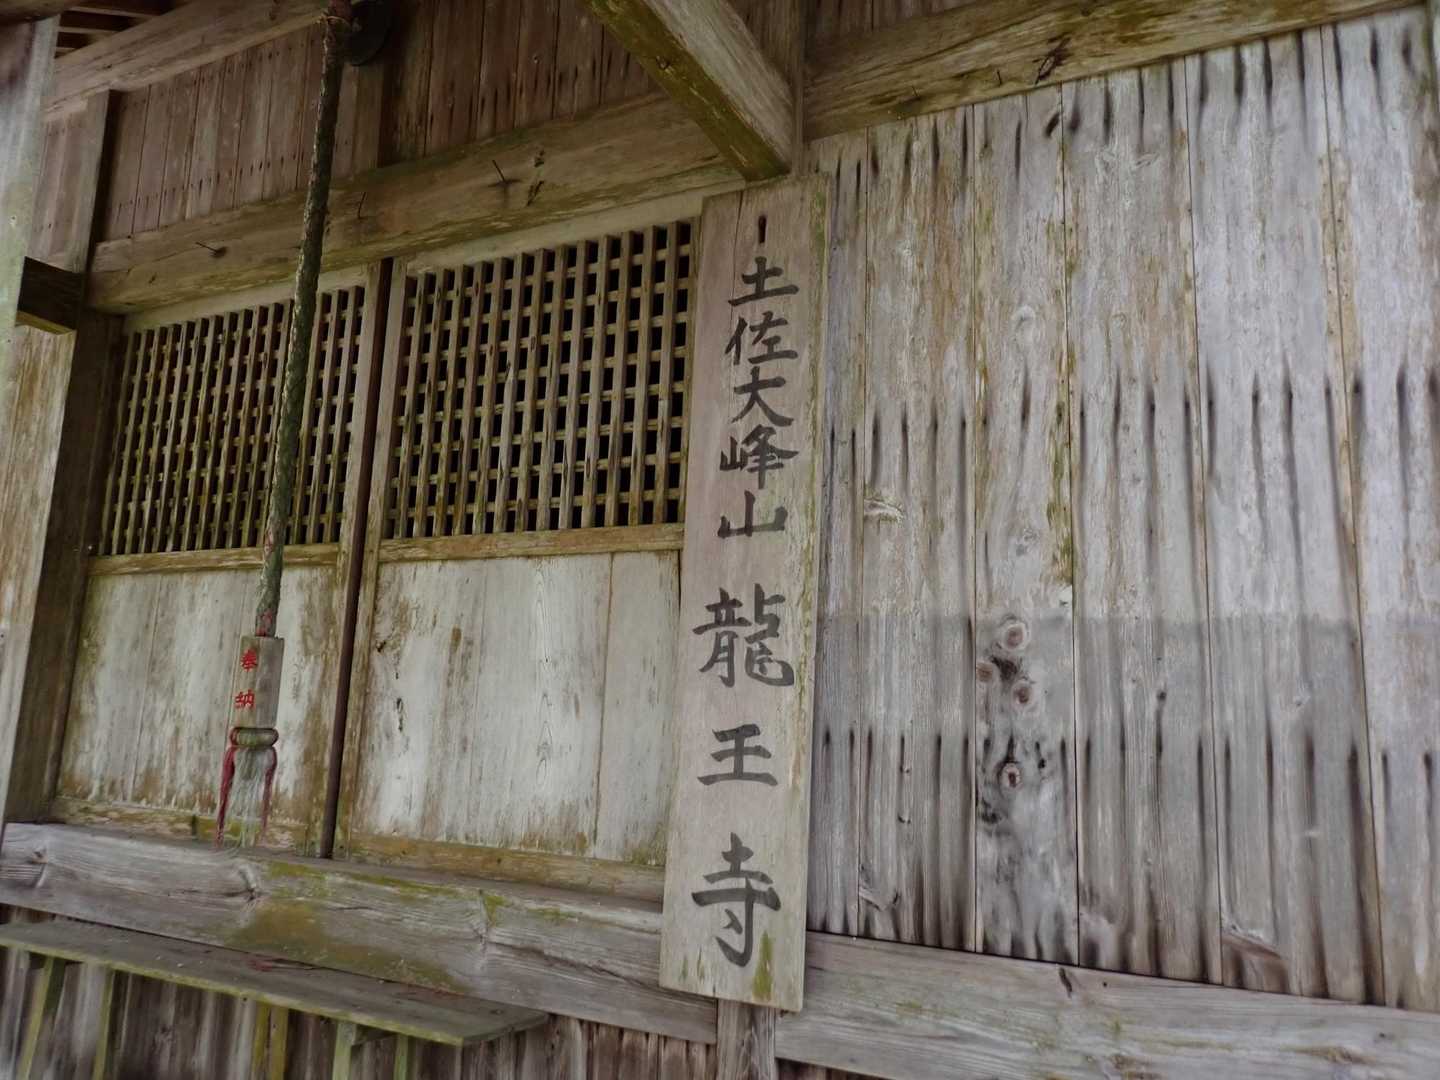 土佐大峰山 龍王寺
奉納